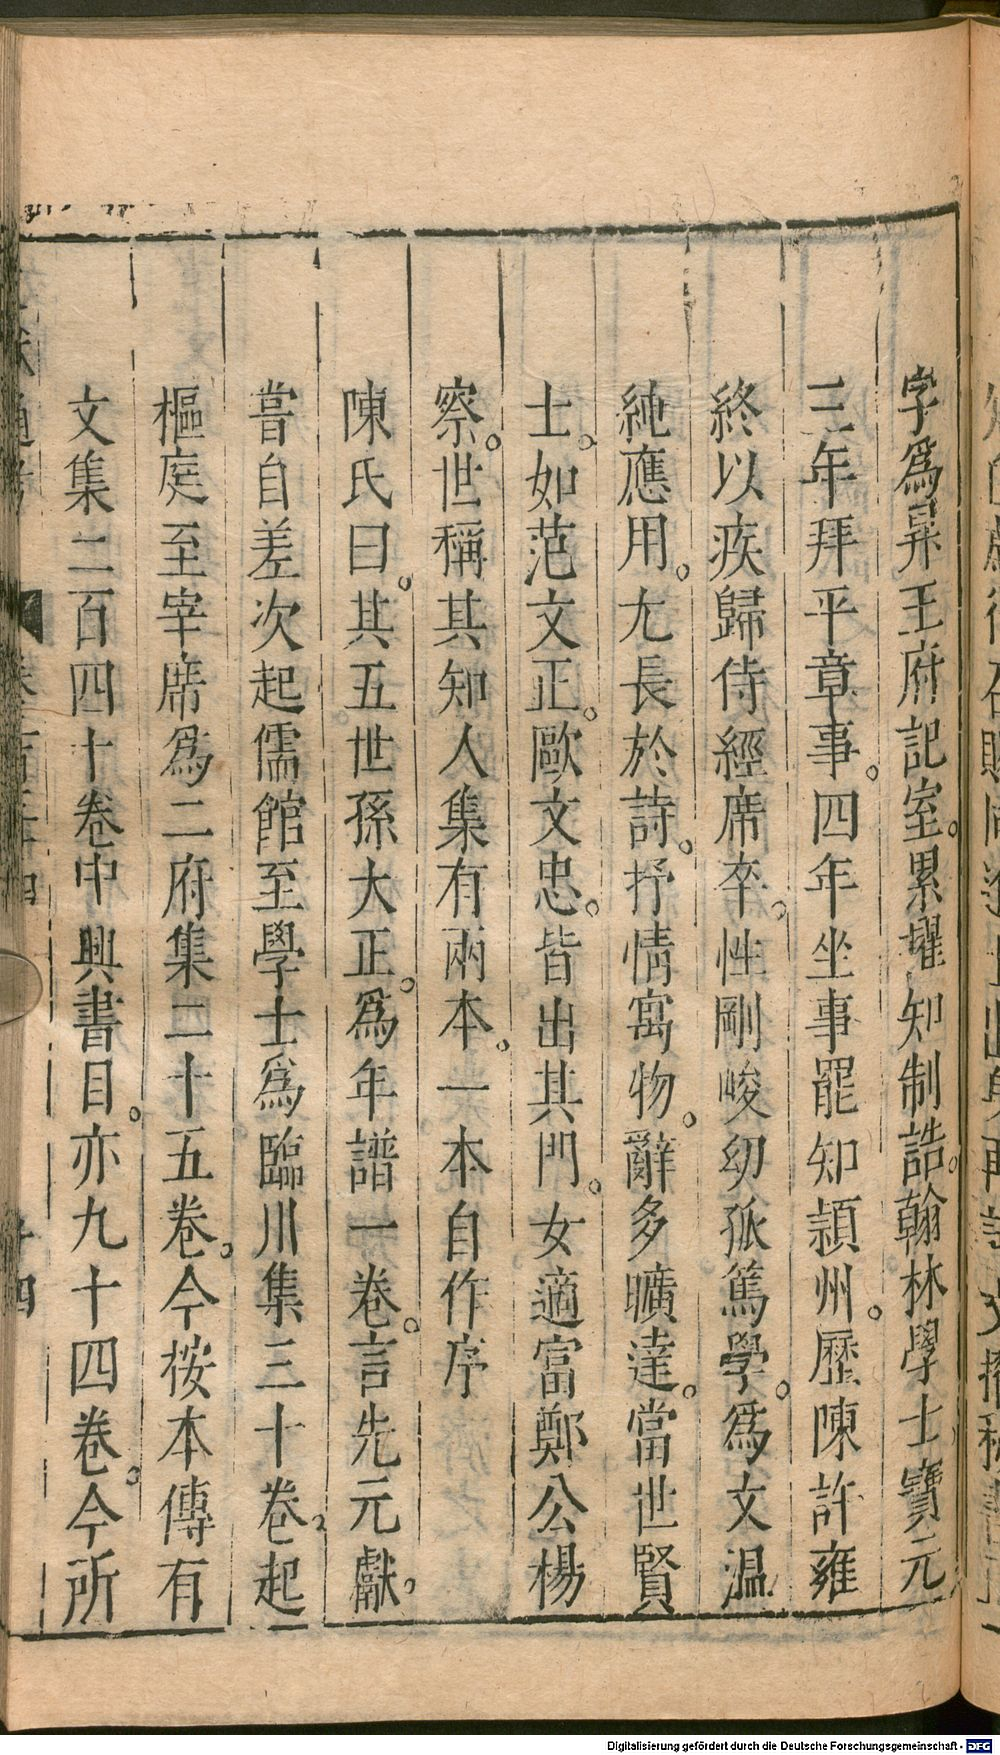 字爲昇王府記室。累擢知制誥。翰林學士寶元
三年拜平章事。四年坐事罷知潁州。歷陳許雍
終以疾歸侍經席卒。性剛峻幼孤篤學。爲文溫
純應用。尤長於詩。抒情寓物。辭多曠達。當世賢
士。如范文正。歐文忠。皆出其門。女適富鄭公楊
察。世稱其知人集有兩本。一本自作序
陳氏曰。其五世孫大正。爲年譜一卷。言先元獻。
嘗自差次起儒館至學士爲臨川集三十卷。起
樞庭至宰席爲二府集二十五卷。今按本傳有
文集二百四十卷中興書目。亦九十四卷。今所
通考
四
Digitalisierung gefördert durch die Deutsche Forschungsgemeinschaft - DFG